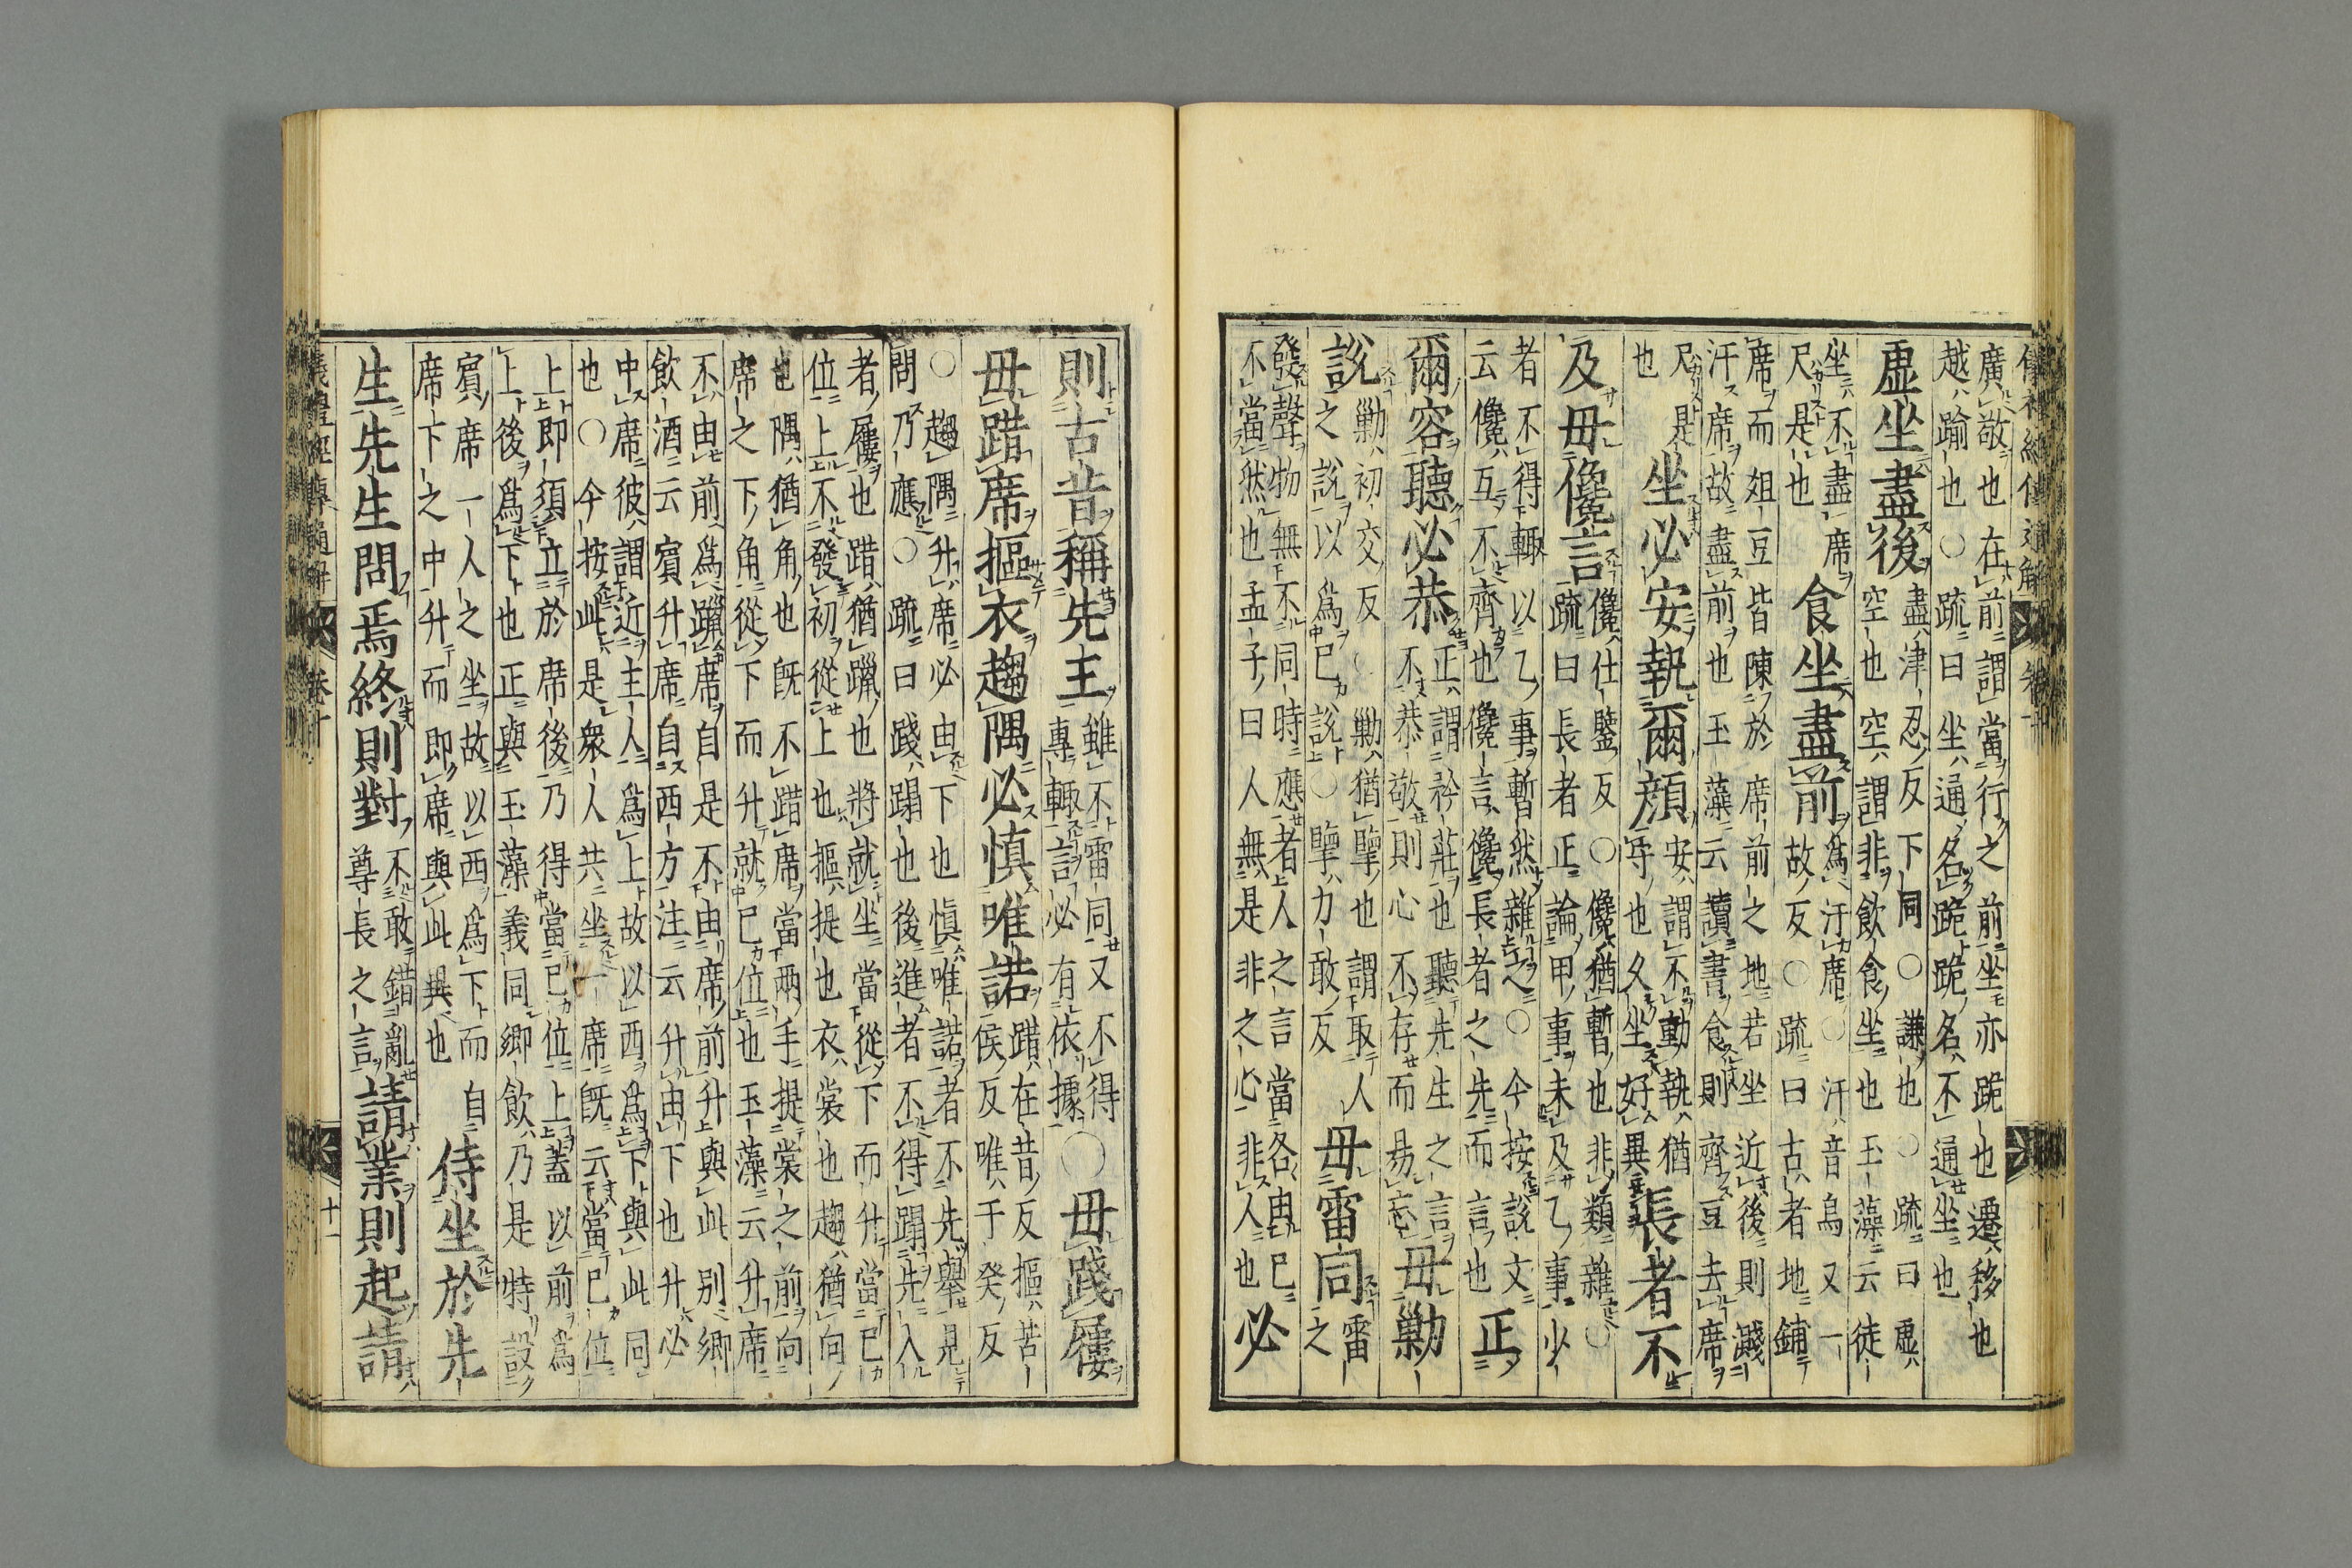 廣敬也在前謂當行之前坐亦跪也遷移也
越踰也○疏曰坐通名跪跪名不通坐也
虛坐盡後 盡津忍反下同○謙也○疏曰虛
空也空謂非飲食坐也玉藻云徒
坐不盡席
尺是也
食坐盡前 爲汙席○汙音烏又一
故反○疏曰古者地鋪
席而俎豆皆陳於席前之地若坐近後則濺
汙席故盡前也玉藻云讀書食則齊豆去席
尺是
也
坐必安執爾顏 安謂不動執猶
守也久坐好異
長者不
及毋儳言 儳仕鑒反○儳猶暫也非類雜○
疏曰長者正論甲事未及乙事少
者不得輒以乙事暫然雜之○今按說文
云儳互不齊也儳言儳長者之先而言也
正
爾容聽必恭 正謂矜莊也聽先生之言
不恭敬則心不存而易忘
毋勦
說 勦初交反○勦猶擥也謂取人
之說以爲己說○擥力敢反
毋雷同 雷
之
發聲物無不同時應者人之言當各由己
不當然也孟子曰人無是非之心非人也
必
則古昔稱先王 雖不雷同又不得
專輒言必有依據
○毋踐屨
毋踖席摳衣趨隅必慎唯諾 踖在昔反摳苦
侯反唯于癸反
○趨隅升席必由下也慎唯諾者不先舉見
問乃應○疏曰踐蹋也後進者不得蹋先入
者屨也踖猶躐也將就坐當從下而升當己
位上不發初從上也摳提也衣裳也趨猶向
也隅猶角也既不踖席當兩手提裳之前向
席之下角從下而升就己位也玉藻云升席
不由前爲躐席自是不由席前升與此別鄉
飲酒云賓升席自西方注云升由下也升必
中席彼謂近主人爲上故以西爲下與此同
也○今按此是衆人共坐一席既云當己位
上即須立於席後乃得當己位上蓋以前爲
上後爲下也正與玉藻義同鄉飲乃是特設
賓席一人之坐故以西爲下而自
席下之中升而即席與此異也
侍坐於先
生先生問焉終則對 不敢錯亂
尊長之言
請業則起請
儀禮經傳通解 卷十 十一